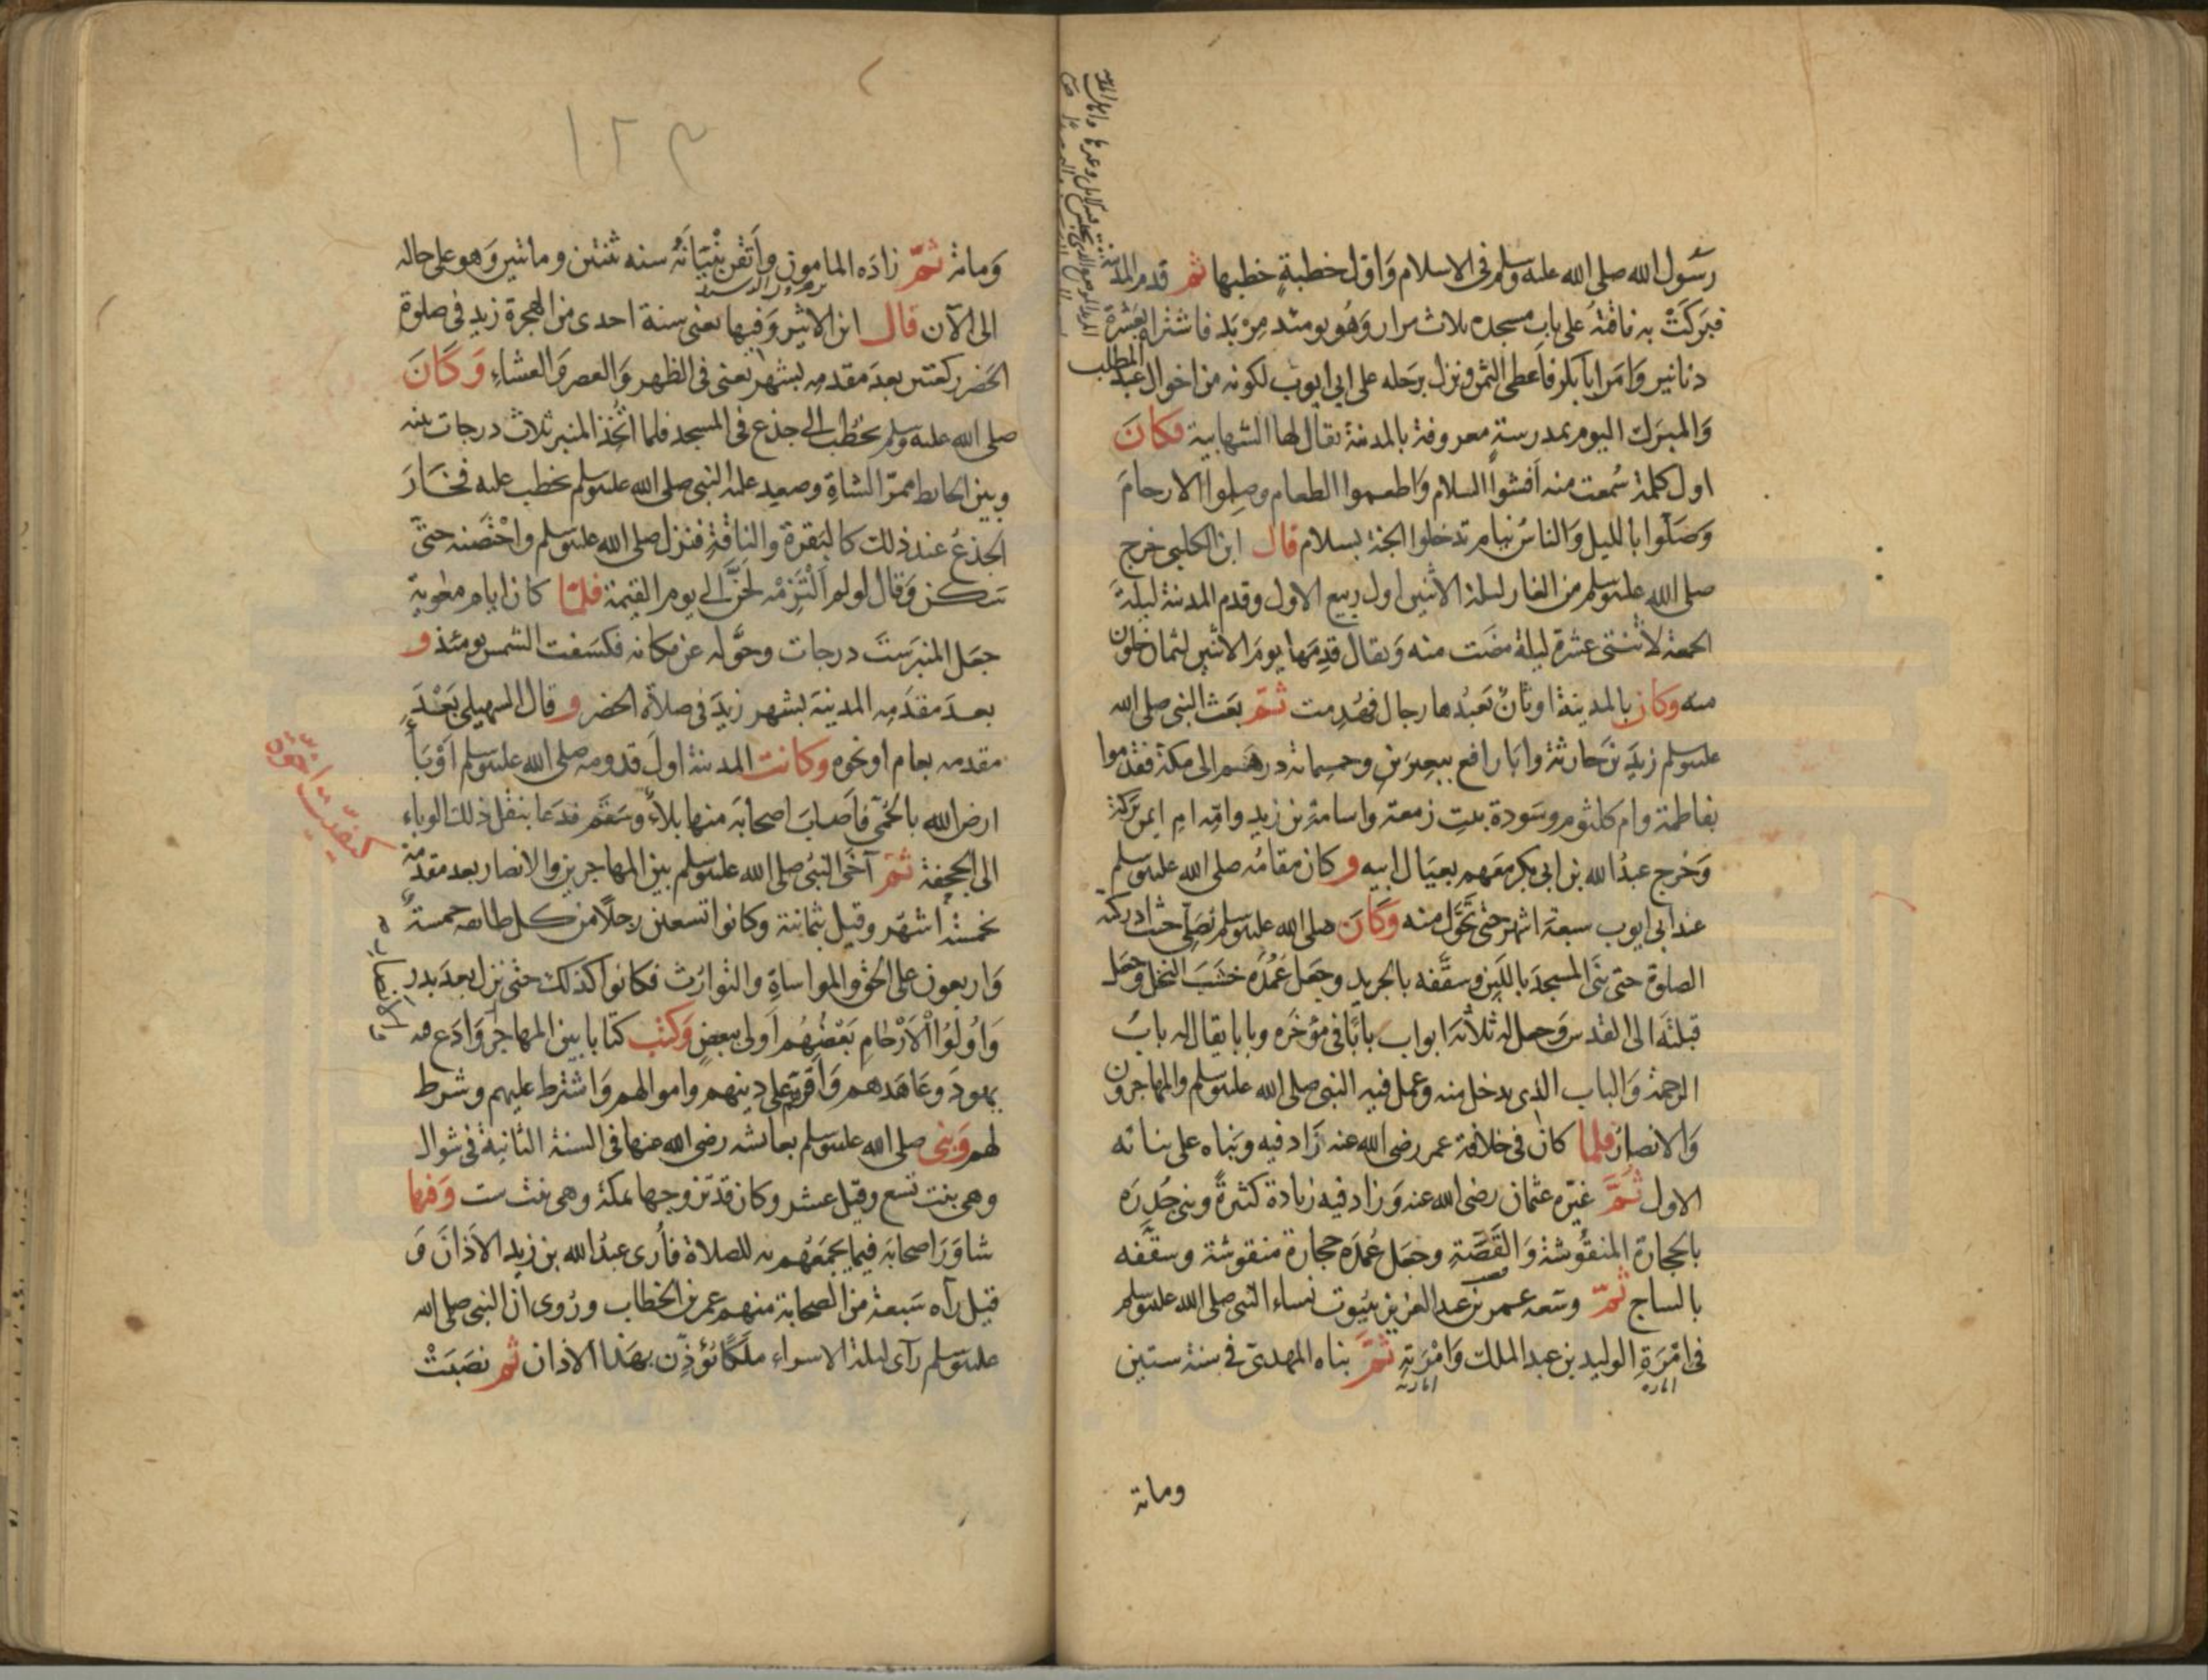 رسول الله صلى الله عليه وسلم في الاسلام واول خطبة خطبها ثم قدم المدينة
فبركت به ناقته على باب مسجده ثلاث مرار وهو يومئذ مربد فاشتراه بعشرة
دنانير وامر ابا بكر فاعطى الثمن ونزل برحله على ابي ايوب لكونه من اخوال عبد المطلب
والمبرك اليوم بمدرسة معروفة بالمدينة يقال لها الشهابية فكان
اول كلمة سمعت منه افشوا السلام واطعموا الطعام وصلوا الارحام
وصلوا بالليل والناس نيام تدخلوا الجنة بسلام قال ابن الكلبي خرج
صلى الله عليه وسلم من الغار ليلة الاثنين اول ربيع الاول وقدم المدينة ليلة
الجمعة لاثنتى عشرة ليلة مضت منه ويقال قدمها يوم الاثنين لثمان خلون
منه وكان بالمدينة اوثان تعبدها رجال فهدمت ثم بعث النبي صلى الله
عليه وسلم زيد بن حارثة وابا رافع ببعيرين وخمسمائة درهم الى مكة فقدموا
بفاطمة وام كلثوم وسودة بنت زمعة واسامة بن زيد وامه ام ايمن بركة
وخرج عبد الله بن ابي بكر معهم بعيال ابيه وكان مقامه صلى الله عليه وسلم
عند ابي ايوب سبعة اشهر حتى تحول منه وكان صلى الله عليه وسلم يصلي حيث ادركته
الصلوة حتى بنى المسجد باللبن وسقفه بالجريد وجعل عمده خشب النخل وجعل
قبلته الى القدس وجعل له ثلاثة ابواب بابا في مؤخره وبابا يقال له باب
الرحمة والباب الذي يدخل منه وعمل فيه النبي صلى الله عليه وسلم والمهاجرون
والانصار فلما كان في خلافة عمر رضي الله عنه زاد فيه وبناه على بنائه
الاول ثم غيره عثمان رضي الله عنه وزاد فيه زيادة كثيرة وبنى جدره
بالحجارة المنقوشة والقصة وجعل عمده حجارة منقوشة وسقفه
بالساج ثم وسعه عمر بن عبد العزيز ببيوت نساء النبي صلى الله عليه وسلم
في امرة الوليد بن عبد الملك وامرته ثم بناه المهدي في سنة ستين
ومائة
١٠٢٣
ومائة ثم زاده المامون واتقن بنيانه سنه ثنتين ومائتين وهو على حاله
الى الآن قال ابن الاثير وفيها يعني سنة احدى من الهجرة زيد في صلوة
الحضر ركعتين بعد مقدمه بشهر يعني في الظهر والعصر والعشاء وكان
صلى الله عليه وسلم يخطب الى جذع في المسجد فلما اتخذ المنبر ثلاث درجات بينه
وبين الحائط ممر الشاة وصعد عليه النبي صلى الله عليه وسلم يخطب عليه فخار
الجذع عند ذلك كالبقرة والناقة فنزل صلى الله عليه وسلم واحتضنه حتى
سكن وقال لو لم التزمه لحن الى يوم القيمة فلما كان ايام معوية
جعل المنبر ست درجات وحوله عن مكانه فكسفت الشمس يومئذ و
بعد مقدمه المدينة بشهر زيد في صلاة الحضر وقال السهيلي بعد
مقدمه بعام او نحوه وكانت المدينة اول قدومه صلى الله عليه وسلم اوبأ
ارض الله بالحمى فاصاب اصحابه منها بلاء وسقم فدعا بنقل ذلك الوباء
الى الجحفة ثم آخى النبي صلى الله عليه وسلم بين المهاجرين والانصار بعد مقدمه
بخمسة اشهر وقيل بثمانية وكانوا تسعين رجلا من كل طائفة خمسة
واربعون على الحق والمواساة والتوارث فكانوا كذلك حتى نزل بعد بدر
واولوا الارحام بعضهم اولى ببعض وكتب كتابا بين المهاجر وادع فيه
يهود وعاهدهم واقرهم على دينهم واموالهم واشترط عليهم وشرط
لهم وبنى صلى الله عليه وسلم بعائشه رضي الله عنها في السنة الثانية في شوال
وهي بنت تسع وقيل عشر وكان قد تزوجها بمكة وهي بنت ست وفيها
شاور اصحابه فيما يجمعهم به للصلاة فأرى عبد الله بن زيد الاذان و
قيل رآه سبعة من الصحابة منهم عمر بن الخطاب وروى ان النبي صلى الله
عليه وسلم رآى ليلة الاسراء ملكا يؤذن بهذا الاذان ثم نصبت